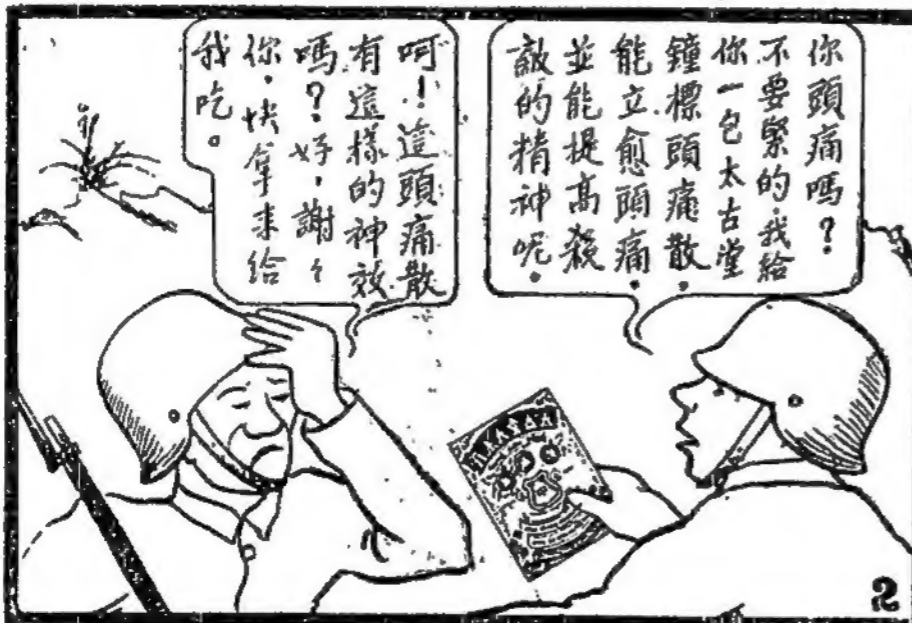 你頭痛嗎？
不要緊的，我給
你一包太古堂
鐘標頭痛散．
能立愈頭痛．
並能提高殺
敵的精神呢．
呵！這頭痛散
有這樣的神效
嗎？好，謝々
你，快拿来給
我吃。
2